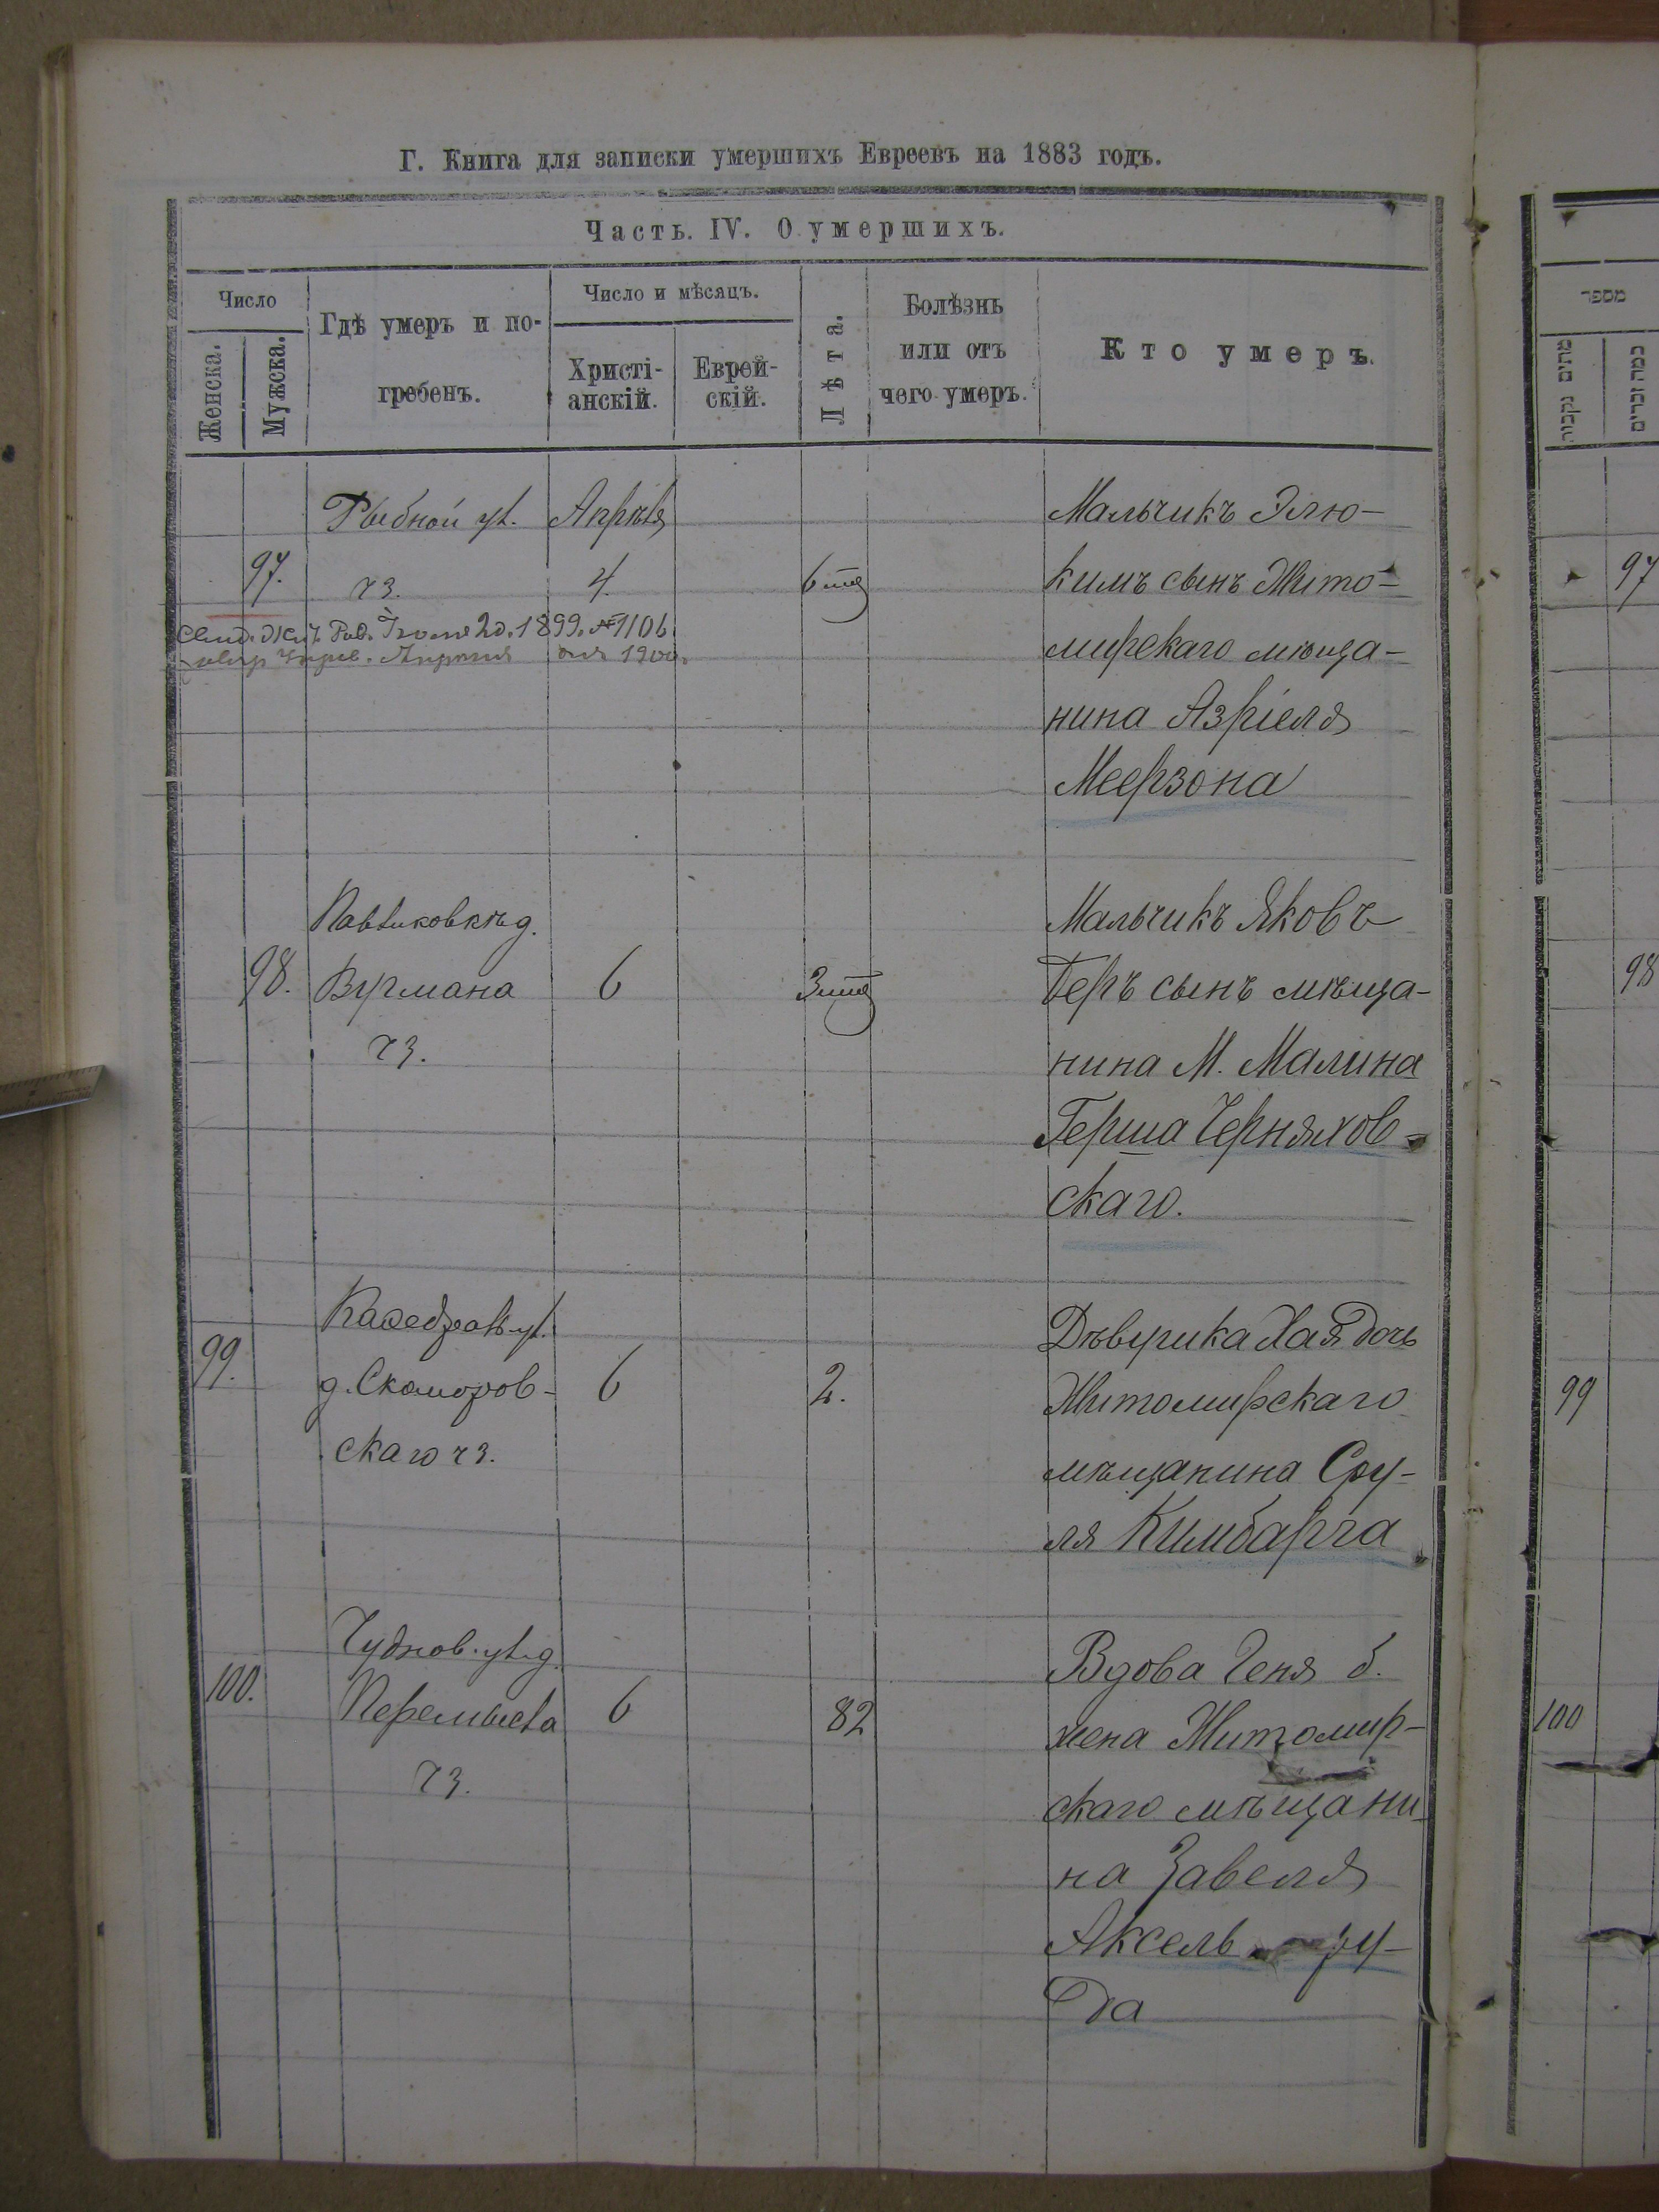 Г. Книга для записки умершихъ Евреевъ на 1883 годъ.
Часть. IV. О умершихъ.
Число
Женска.
Мужска.
Гдѣ умеръ и по-
гребенъ.
Число и мѣсяцъ.
Христі-
анскій.
Еврей-
скій.
Лѣта.
Болѣзнь
или отъ
чего умеръ.
Кто умеръ.
97.
Рыбной ул.
чз.
Апрѣля
4.
6 мц
Мальчикъ Элю-
кимъ сынъ Жито-
мирскаго мѣща-
нина Азріеля
Меерзона
1899. № 1106
1900.
98.
Павликовкѣ д.
Вурмана
чз.
6
3 мц
Мальчикъ Яковъ
Беръ сынъ мѣща-
нина М. Малина
Герша Черняхов-
скаго.
99.
Каѳедраль. ул.
д. Скоморов-
скаго чз.
6
2.
Дѣвушка Хая дочь
Житомирскаго
мѣщанина Сру-
ля Кимбарга
100.
Чуднов. ул. д.
Перемысла
чз.
6
82
Вдова Геня б.
жена Житомир-
скаго мѣщани-
на Завеля
Аксель ру-
да
מספר
97
98
99
100